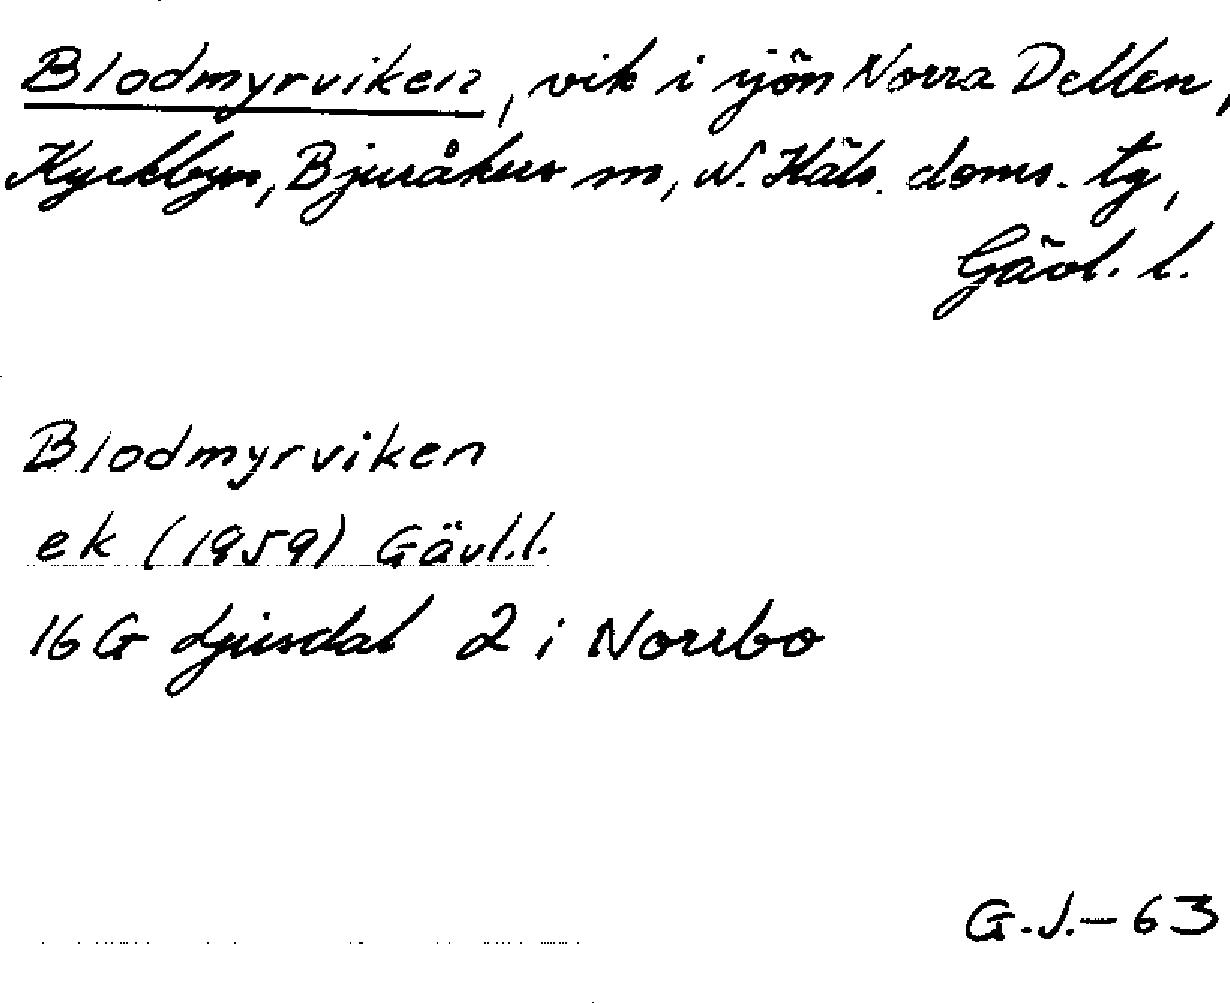 Blodmyrviken, vik i sjön Norra Dellen,
Kyrkbyn, Bjuråkers sn, N. Häls. doms. tg,
Gävl. l.
Blodmyrviken
ek (1959) Gävl.l.
16G Ljusdal 2 i Norrbo
G.J.–63